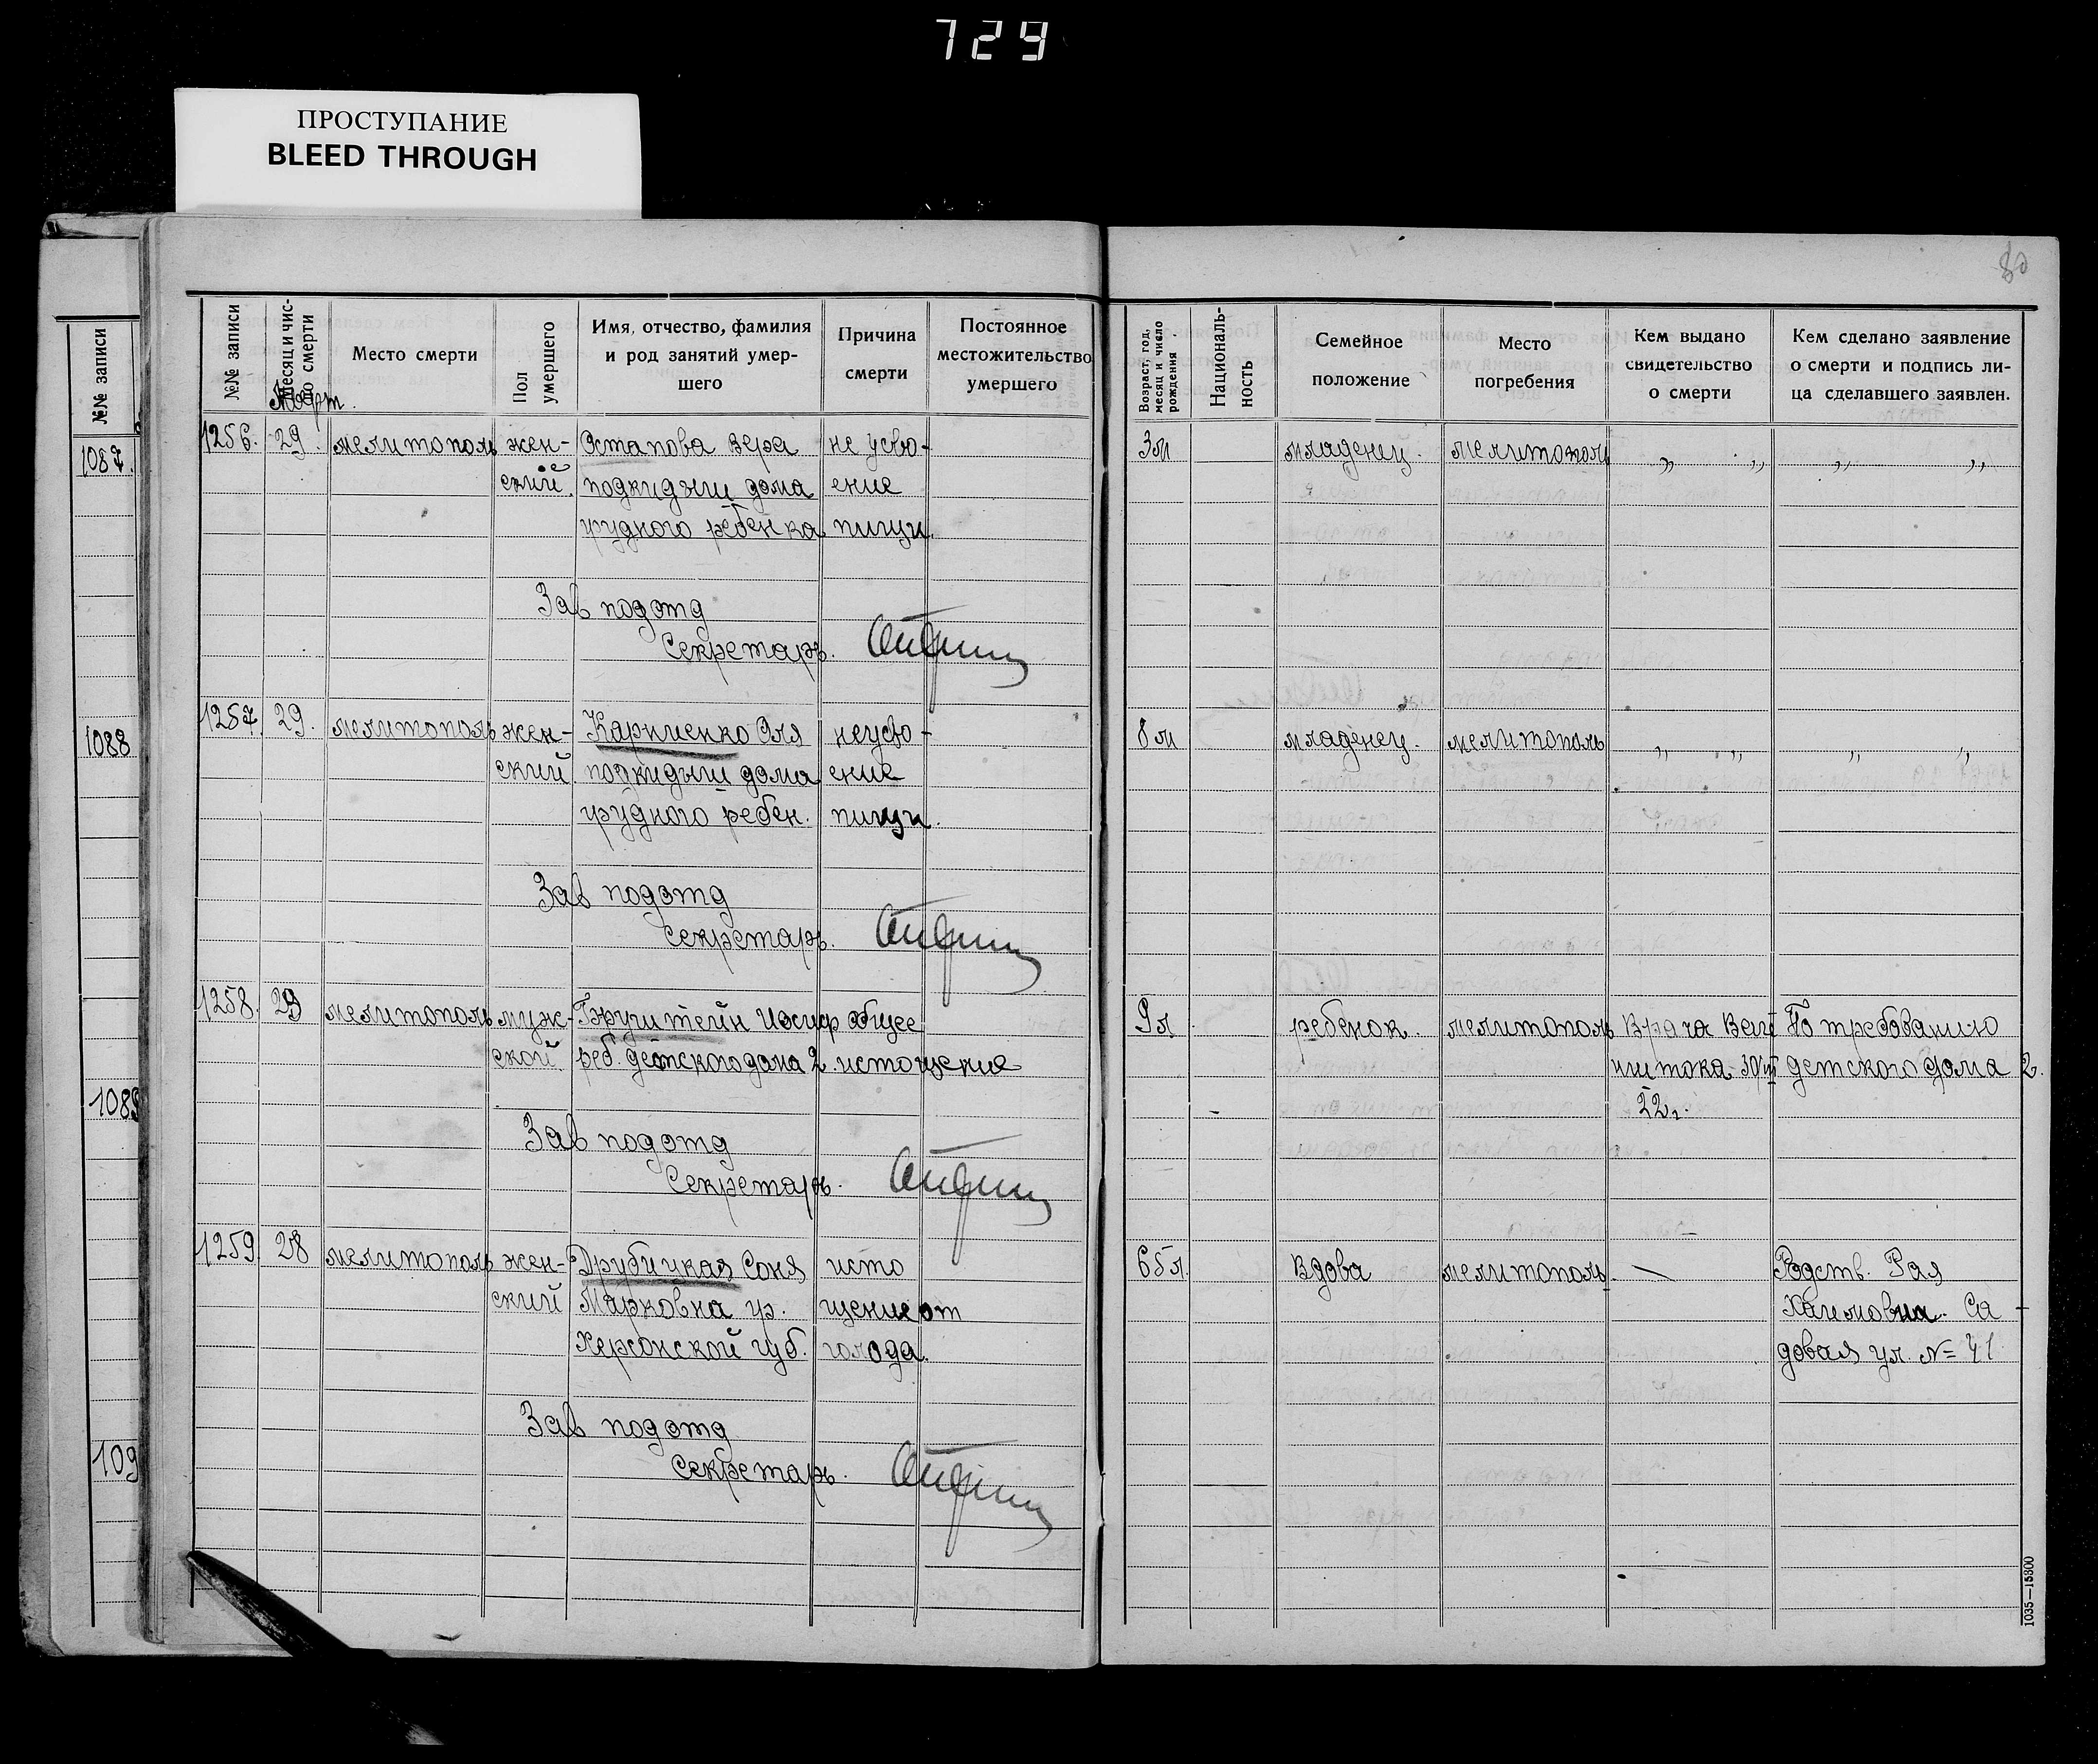 729
ПРОСТУПАНИЕ
BLEED THROUGH
80
№№ записи
1087.
1088
1089
109
№№ записи
Месяц и чис-
ло смерти
Март.
Место смерти
Пол
умершего
Имя, отчество, фамилия
и род занятий умер-
шего
Причина
смерти
Постоянное
местожительство
умершего
Возраст, год,
месяц и число
рождения
Националь-
ность
Семейное
положение
Место
погребения
Кем выдано
свидетельство
о смерти
Кем сделано заявление
о смерти и подпись ли-
ца сделавшего заявлен.
1256. 29. мелитополь жен- Остапова Вера не усво- 3м младенец. мелитополь " " " "
ский. подкидыш дома ение
грудного ребенка пищи.
Зав подотд
Секретарь.
1257 29. мелитополь жен- Карпиенко Оля неусво- 8м младенец. мелитополь " " " "
ский. подкидыш дома ение
грудного ребен. пищи.
Зав подотд
Секретарь.
1258. 29 мелитополь муж- Иосиф общее 9л ребенок. мелитополь Врача По требованию
ской. реб. детского дома 2. истощение 30/III детского дома 2.
22г.
Зав подотд
Секретарь.
1259. 28 мелитополь жен- Друбицкая Соня исто 65л. вдова мелитополь. — Родств. Рая
ский Марковна гр. щение от Хаимовна. Са-
Херсонской губ. голода. довая ул. № 41
Зав подотд
Секретарь.
1035—15300